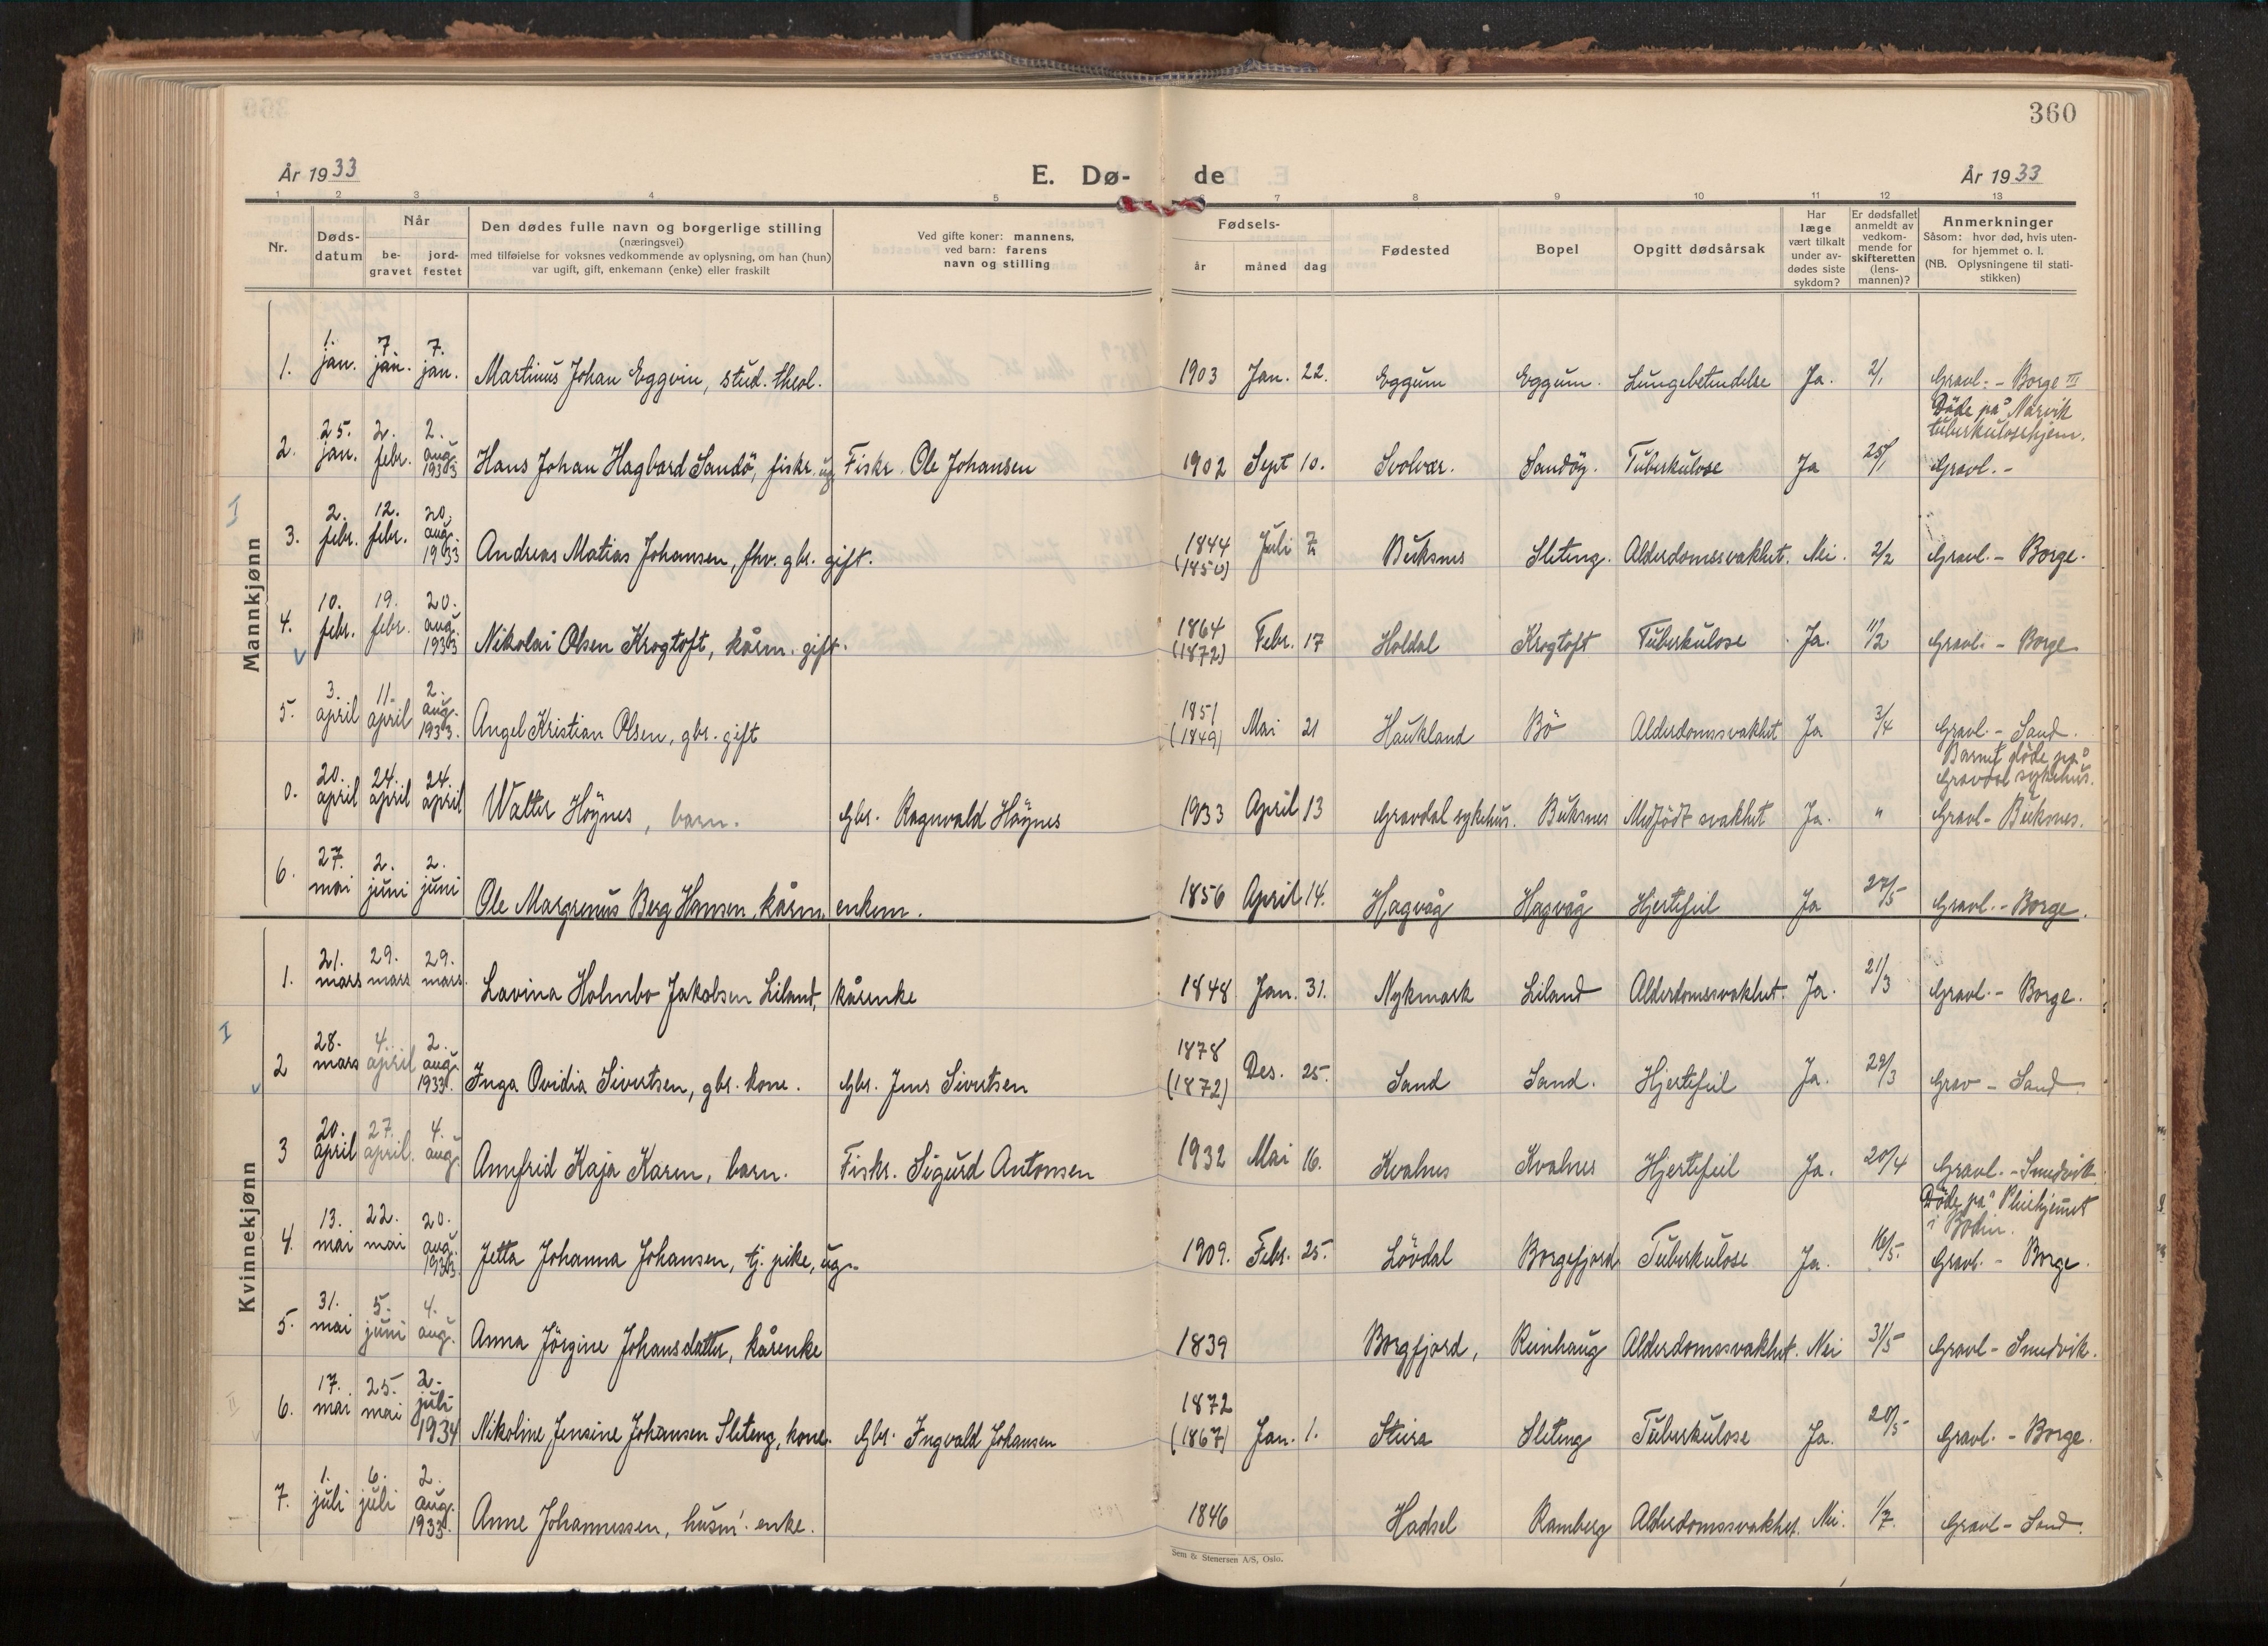 360
År 1933
E. Dø-
de
År 1933
1 2 3 4 5 6 7 8 9 10 11 12 13
Nr.
Døds-
datum
Når
be-
gravet
jord-
festet
Den dødes fulle navn og borgerlige stilling
(næringsvei)
med tilføielse for voksnes vedkommende av oplysning, om han (hun)
var ugift, gift, enkemann (enke) eller fraskilt
Ved gifte koner: mannens,
ved barn: farens
navn og stilling
Fødsels-
år
måned
dag
Fødested
Bopel
Opgitt dødsårsak
Har
læge
vært tilkalt
under av-
dødes siste
sykdom?
Er dødsfallet
anmeldt av
vedkom-
mende for
skifteretten
(lens-
mannen)?
Anmerkninger
Såsom: hvor død, hvis uten-
for hjemmet o. l.
(NB. Oplysningene til stati-
stikken)
Mannkjønn
1. 1. jan. 7. jan. 7. jan. Martinus Johan Eggvin, stud. theol. 1903 Jan. 22. Eggum Eggum. Lungebetendelse Ja. 2/1 Gravl. - Borge III
Døde på Narvik
tuberkulosehjem.
2. 25. jan. 2. febr. 2. aug. 1933 Hans Johan Hagbard Sandö, fiskr. ug. Fiskr. Ole Johansen 1902 Sept 10. Svolvær. Sandöy. Tuberkulose Ja 25/1 Gravl. -
I
3. 2. febr. 12. febr. 20. aug. 1933 Andreas Matias Johansen, fhv. gbr. gift. 1844 (1850) Juli 7 Buksnes Sleteng. Alderdomssvakhet. Nei. 2/2 Gravl. - Borge.
4. 10. febr. 19. febr. 20. aug. 1933 Nikolai Olsen Krogtoft, kårm. gift. 1864 (1872) Febr. 17 Holdal Krogtoft Tuberkulose Ja. 11/2 Gravl. - Borge
5. 3. april 11. april 2. aug. 1933. Angel Kristian Olsen, gbr. gift 1851 (1849) Mai 21 Haukland Bö Alderdomssvakhet Ja 3/4 Gravl. - Sand.
Barnet döde på
Gravdal sykehus.
0. 20. april 24. april 24. april Walter Höynes, barn. Gbr. Ragnvald Höynes 1933 April 13 Gravdal sykehus. Buksnes Medfödt svakhet Ja. " Gravl - Buksnes.
6. 27. mai 2. juni 2. juni Ole Margrenus Berg Hansen, kårm. enkem. 1856 April 14. Hagvåg Hagvåg Hjertefeil Ja 27/5 Gravl. - Borge.
Kvinnekjønn
1. 21. mars 29. mars 29. mars. Lavina Holmbo Jakobsen Liland, kårenke 1848 Jan. 31. Nykmark Liland Alderdomssvakhet. Ja. 21/3 Gravl. - Borge.
I
2 28. mars 4. april 2. aug. 1933. Inga Ovidia Sivertsen, gbr. kone. Gbr. Jens Sivertsen 1878 (1872) Des. 25. Sand Sand. Hjertefeil Ja. 29/3 Grav - Sand
3 20. april 27. april. 4. aug. Annfrid Kaja Karm, barn. Fiskr. Sigurd Antonsen 1932 Mai 16. Kvalnes Kvalnes Hjertefeil Ja. 20/4 Gravl. - Smedvik
Döde på Pleiehjemmet
i Bodin.
4. 13. mai 22. mai 20. aug. 1933 Jetta Johanna Johansen, tj. pike, ug. 1909. Febr. 25. Lövdal Borgefjord Tuberkulose Ja. 16/5. Gravl. - Borge.
5. 31. mai 5. juni 4. aug. Anna Jörgine Johansdatter, kårenke 1839 Borgfjord, Reinhaug Alderdomssvakhet. Nei 31/5 Gravl - Smedvik.
II
6. 17. mai 25. mai 2. juli 1934 Nikoline Jensine Johansen Sleteng, kone. Gbr. Ingvald Johansen 1872 (1867) Jan. 1. Steira Sleteng Tuberkulose Ja. 20/5 Gravl. - Borge.
7. 1. juli 6. juli 2. aug. 1933. Anne Johannessen, husm. enke. 1846 Hadsel Ramberg Alderdomssvakhet. Nei. 1/7. Gravl - Sand.
Sem & Stenersen A/S, Oslo.